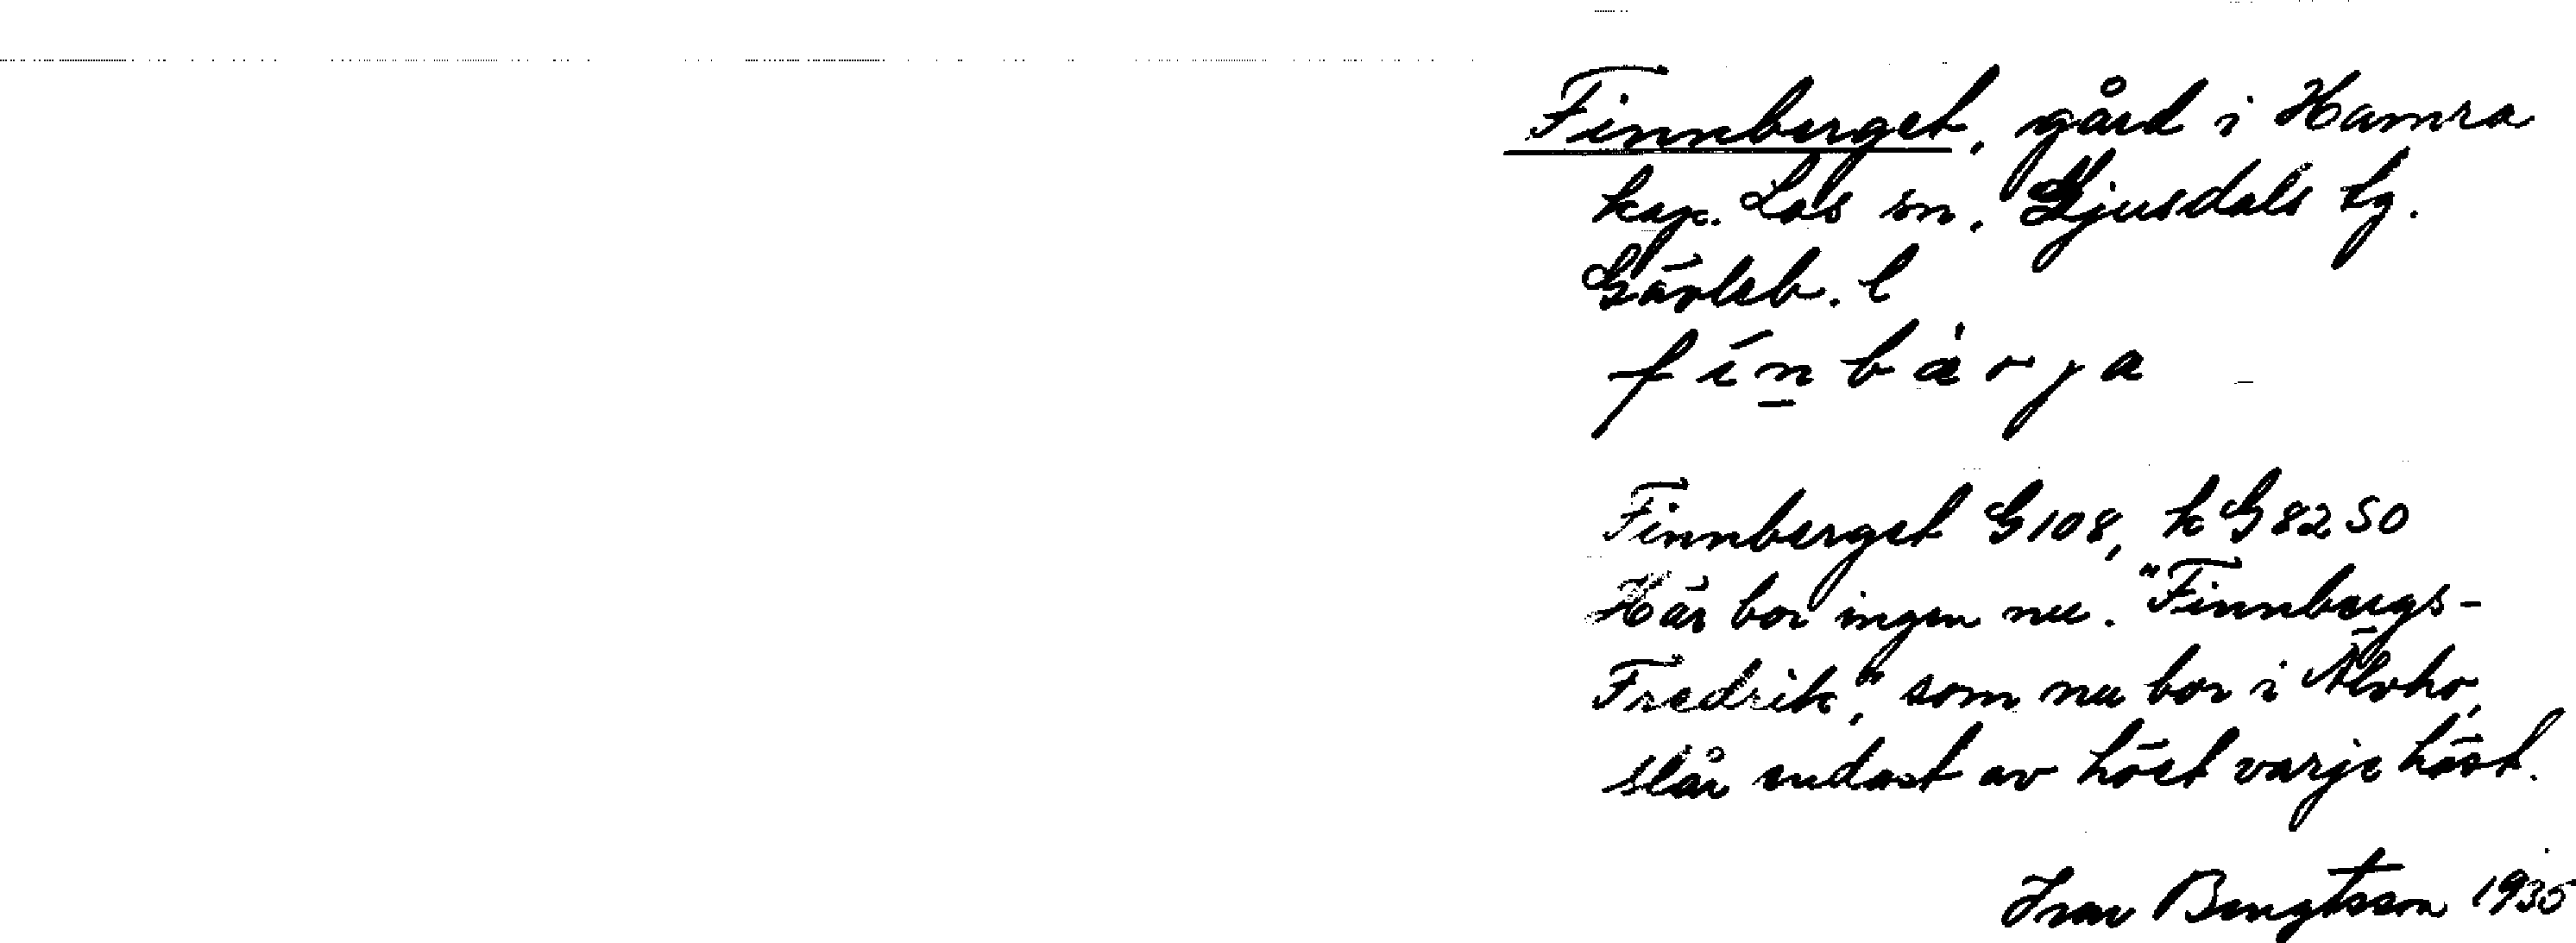 Finnberget, gård i Hamra
kap. Los sn, Ljusdals tg.
Gävleb. l
fínbàrya
Finnberget G108, k G 82 SO
Här bor ingen nu. "Finnbergs-
Fredrik", som nu bor i Älvho,
slår endast av höet varje höst.
Ivar Bengtsson 1935